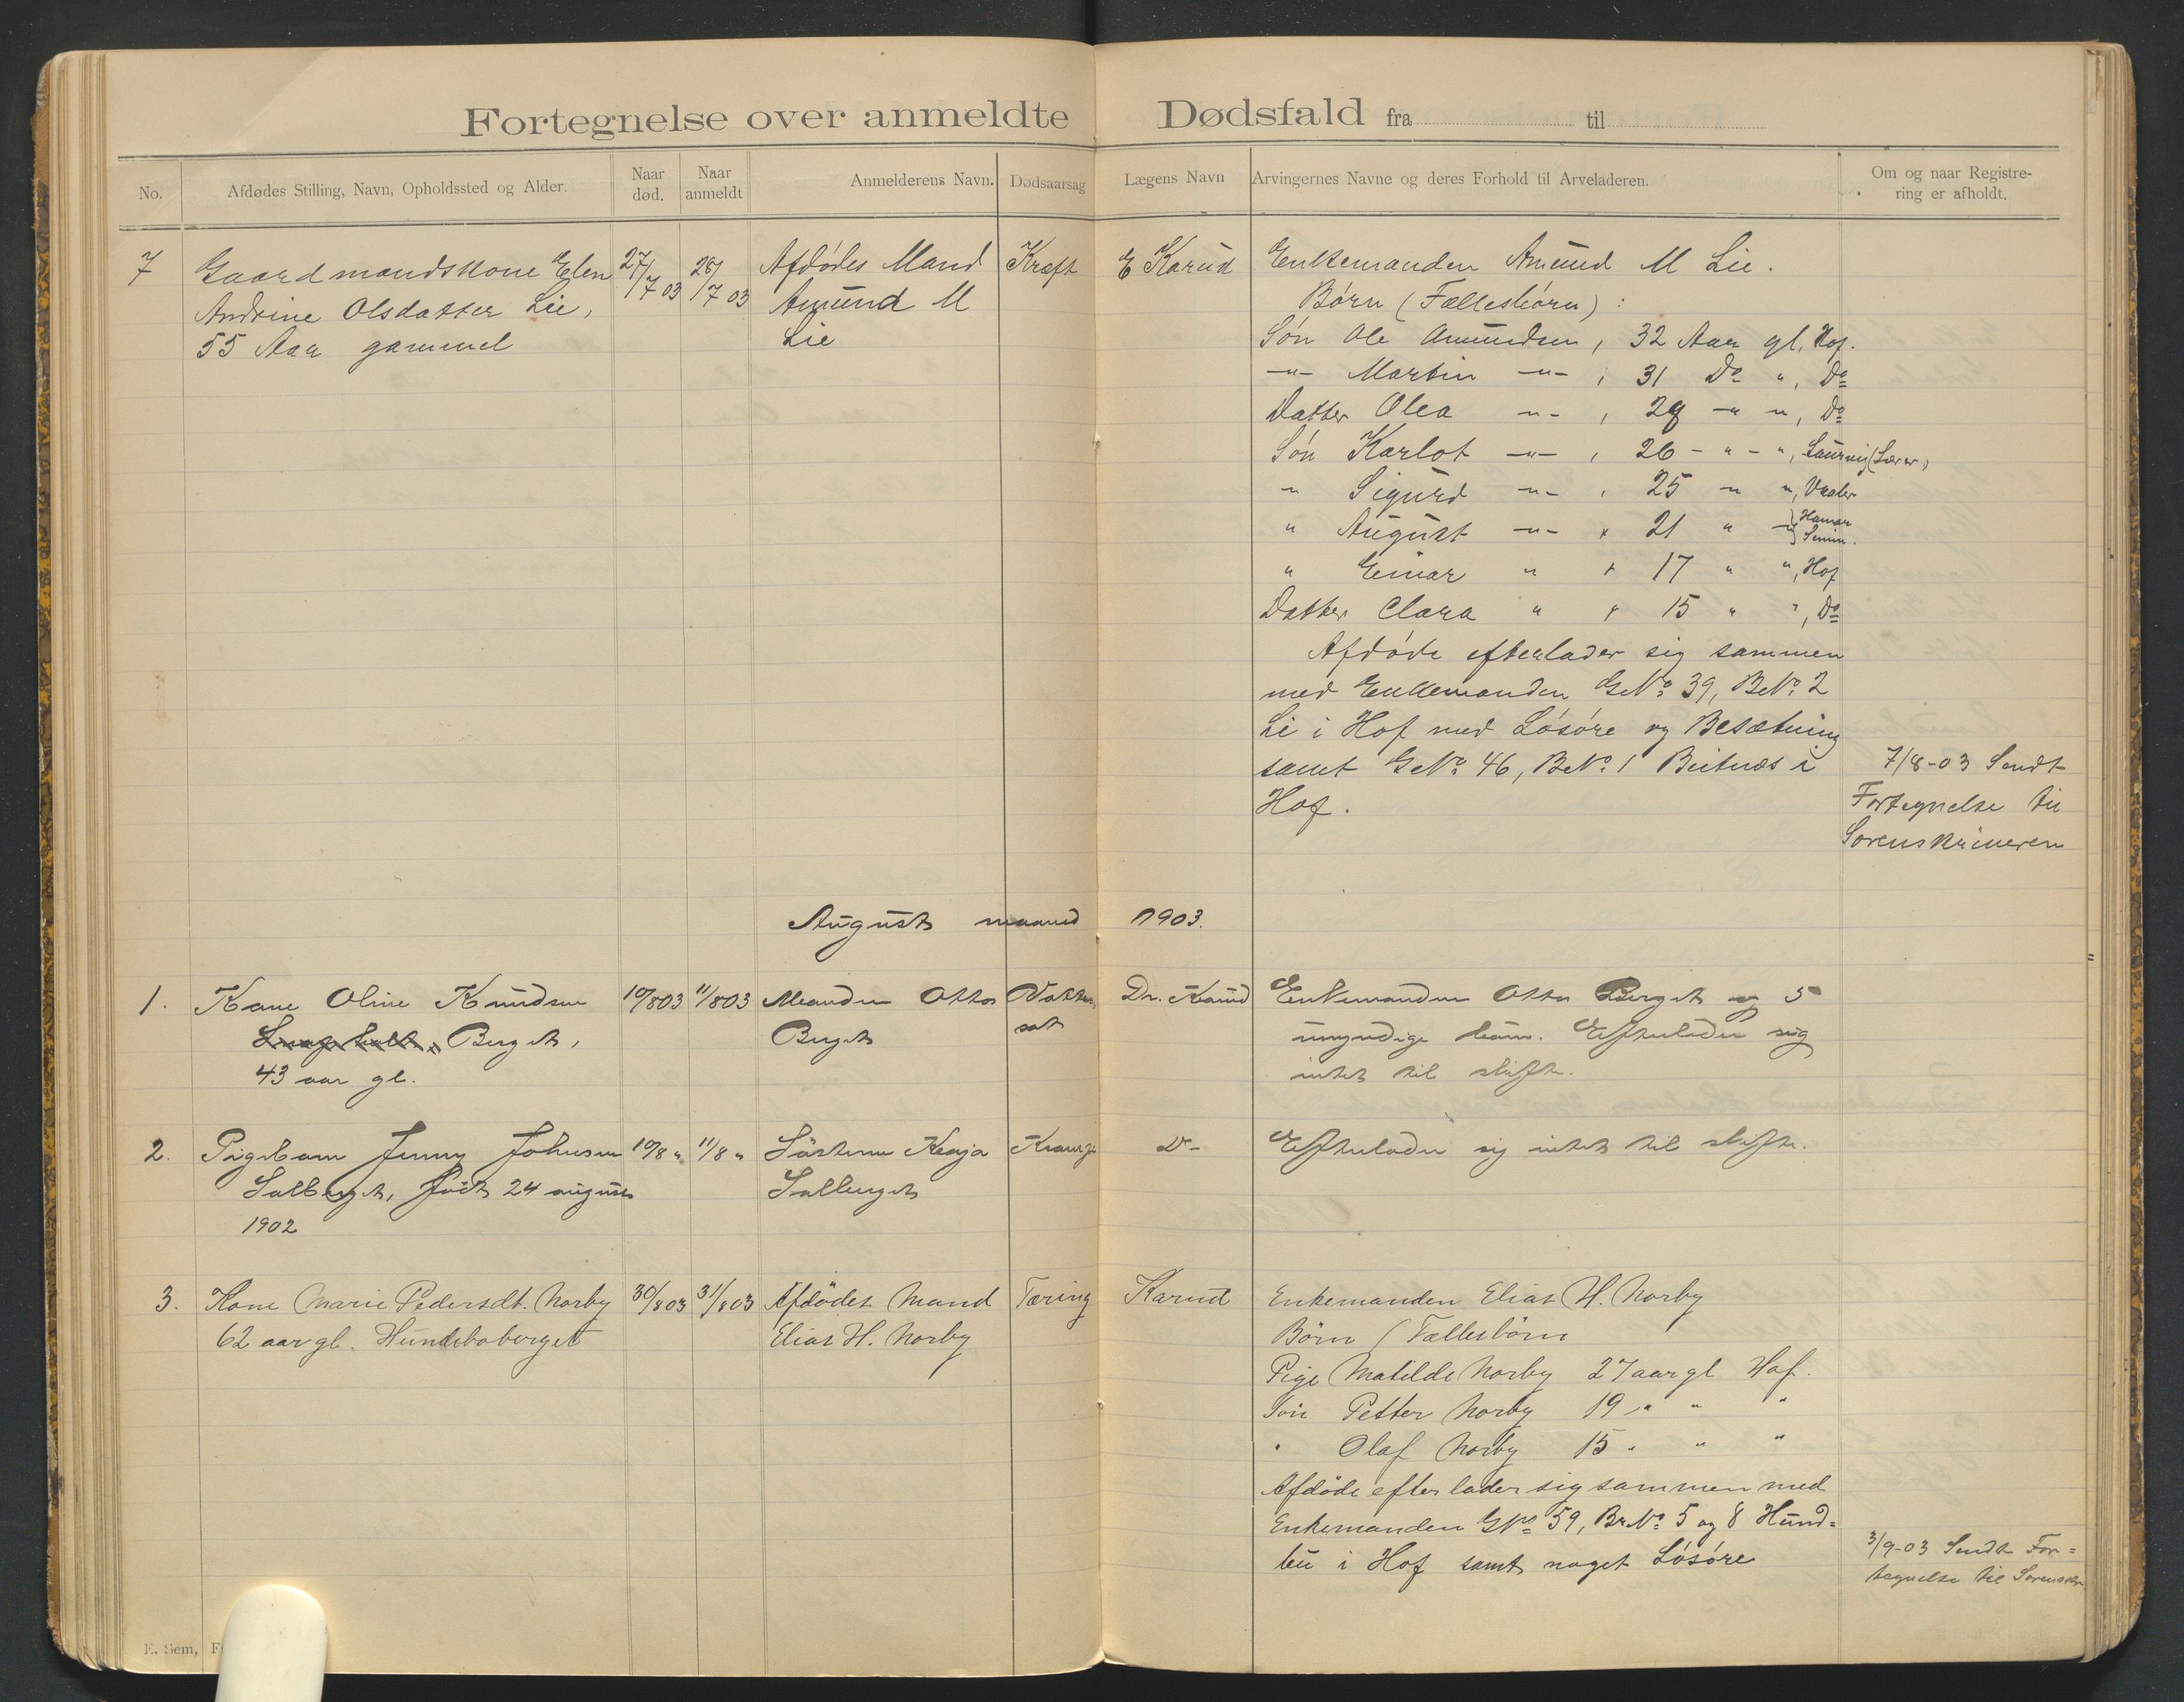 Fortegnelse over anmeldte Dødsfald fra til
No.
Afdødes Stilling, Navn, Opholdssted og Alder.
Naar død.
Naar anmeldt
Anmelderens Navn.
Dødsaarsag
Lægens Navn
Arvingernes Navne og deres Forhold til Arveladeren.
Om og naar Registrering er afholdt.
7
Gaardmandskone Elen
Andrine Olsdatter Lie,
55 Aar gammel
27/7 03
28/7 03
Afdødes Mand
Amund M
Lie
Kræft
E Karud
Enkemanden Amund M Lie.
Børn (Fællesbørn) :
Søn Ole Amundsen, 32 Aar gl, Hof.
-"- Martin -"- , 31 Do ", Do
Datter Olea -"- , 29 -" ", Do
Søn Karlot -"- , 26 - " - ", Laurvig (Lærer)
" Sigurd -"- , 25 " ", Vaaler
" August -"- , 21 " -" } Hamar Semin.
" Einar " , 17 " ", Hof
Datter Clara " , 15 " ", Do
Afdøde efterlader sig sammen
med Enkemanden GNo. 39, BNo. 2
Li i Hof med Løsøre og Besætning
samt GNo. 46, BNo. 1 Beitnæs i
Hof.
7/8-03 Sendt
Fortegnelse til
Sorenskriveren
August maaned 1903.
1.
Kone Oline Knudsen
Berget,
43 aar gl.
10/8 03
11/8 03
Manden Otto
Berget
Vatter-
sot
Dr. Karud
Enkemanden Otto Berget og 5
umyndige børn. Efterlader sig
intet til skifte.
2.
Pigebarn Jenny Johnsen
Salberget, født 24 august
1902
10/8 "
11/8 "
Søsteren Kaja
Salberget
Do-
Efterlader sig intet til skifte.
3.
Kone Marie Pedersdt. Norby
62 aar gl. Hundeboberget
30/8 03
31/8 03
Afdødes Mand
Elias H. Norby
Tæring
Karud
Enkemanden Elias H. Norby
Börn (Fællesbörn
Pige Matilde Norby 27 aar gl Hof.
Søn Petter Norby 19 " " "
" Olaf Norby 15 " " "
Afdöde efterlader sig sammen med
Enkemanden GNo 59, BrNo. 5 og 8 Hund=
bu i Hof samt noget Løsøre
3/9-03 Sendt For=
tegnelse til Sorenskr
E. Sem, F